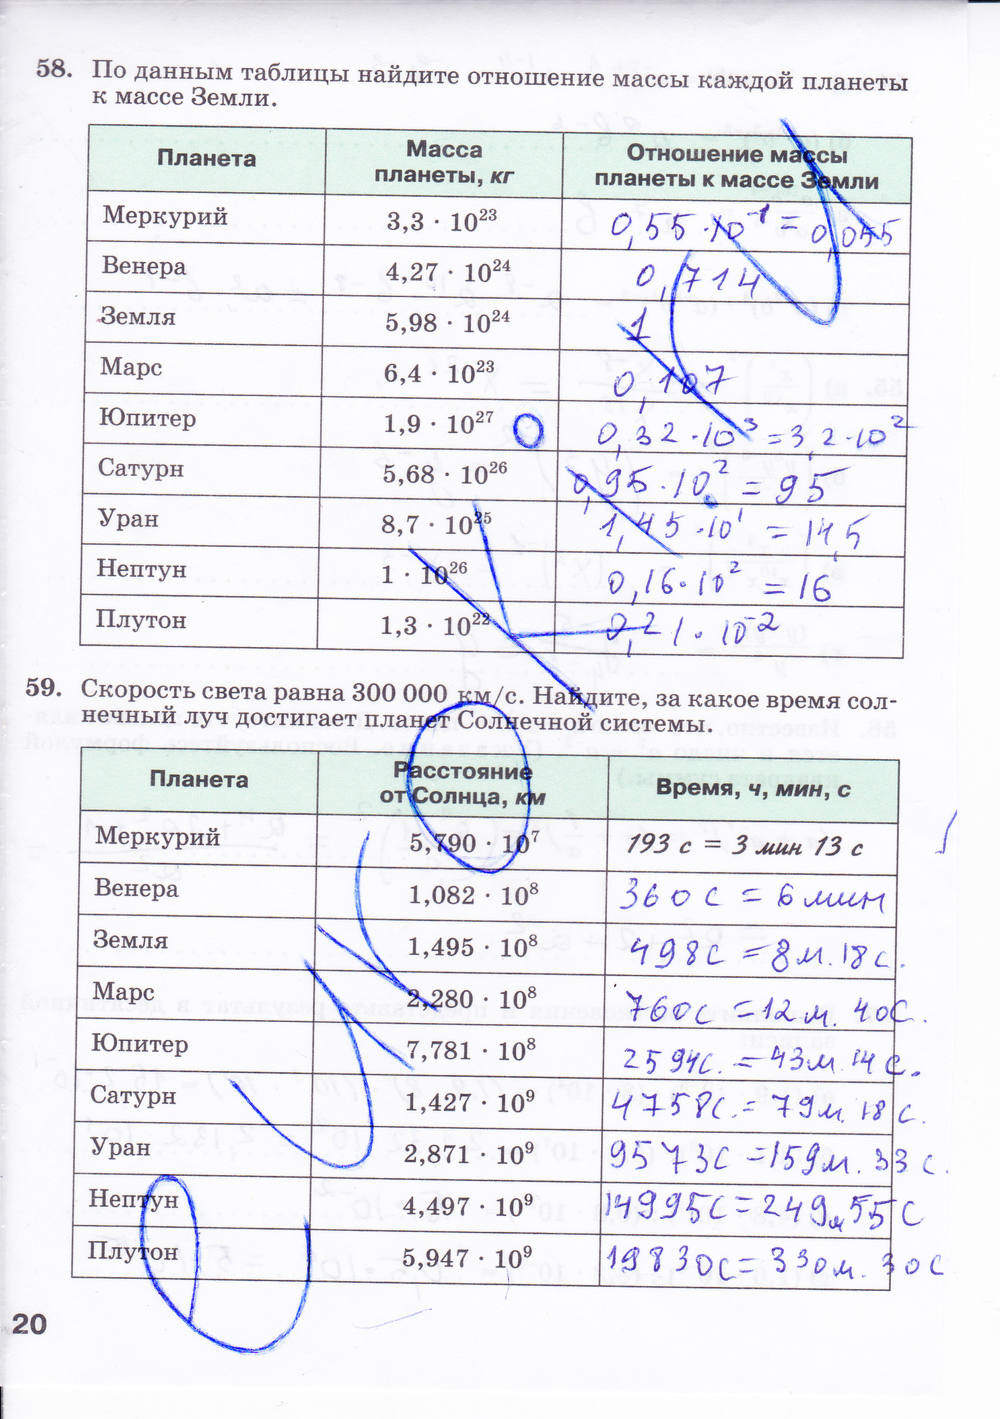 58. По данным таблицы найдите отношение массы каждой планеты
к массе Земли.
Планета Масса планеты, кг Отношение массы планеты к массе Земли
Меркурий 3,3 · 10²³ 0,55·10⁻¹ = 0,055
Венера 4,27 · 10²⁴ 0,714
Земля 5,98 · 10²⁴ 1
Марс 6,4 · 10²³ 0,107
Юпитер 1,9 · 10²⁷ 0,32·10³ = 3,2·10²
Сатурн 5,68 · 10²⁶ 0,95·10² = 95
Уран 8,7 · 10²⁵ 1,45·10¹ = 14,5
Нептун 1 · 10²⁶ 0,16·10² = 16
Плутон 1,3 · 10²² 0,21·10⁻²
59. Скорость света равна 300 000 км/с. Найдите, за какое время сол-
нечный луч достигает планет Солнечной системы.
Планета Расстояние от Солнца, км Время, ч, мин, с
Меркурий 5,790 · 10⁷ 193 с = 3 мин 13 с
Венера 1,082 · 10⁸ 360 с = 6 мин
Земля 1,495 · 10⁸ 498с = 8м.18с.
Марс 2,280 · 10⁸ 760с = 12м. 40с.
Юпитер 7,781 · 10⁸ 2594с. = 43м.14с.
Сатурн 1,427 · 10⁹ 4758с. = 79м.18с.
Уран 2,871 · 10⁹ 9573с = 159м.33с.
Нептун 4,497 · 10⁹ 14995с = 249м 55с
Плутон 5,947 · 10⁹ 19830с = 330м. 30с
20